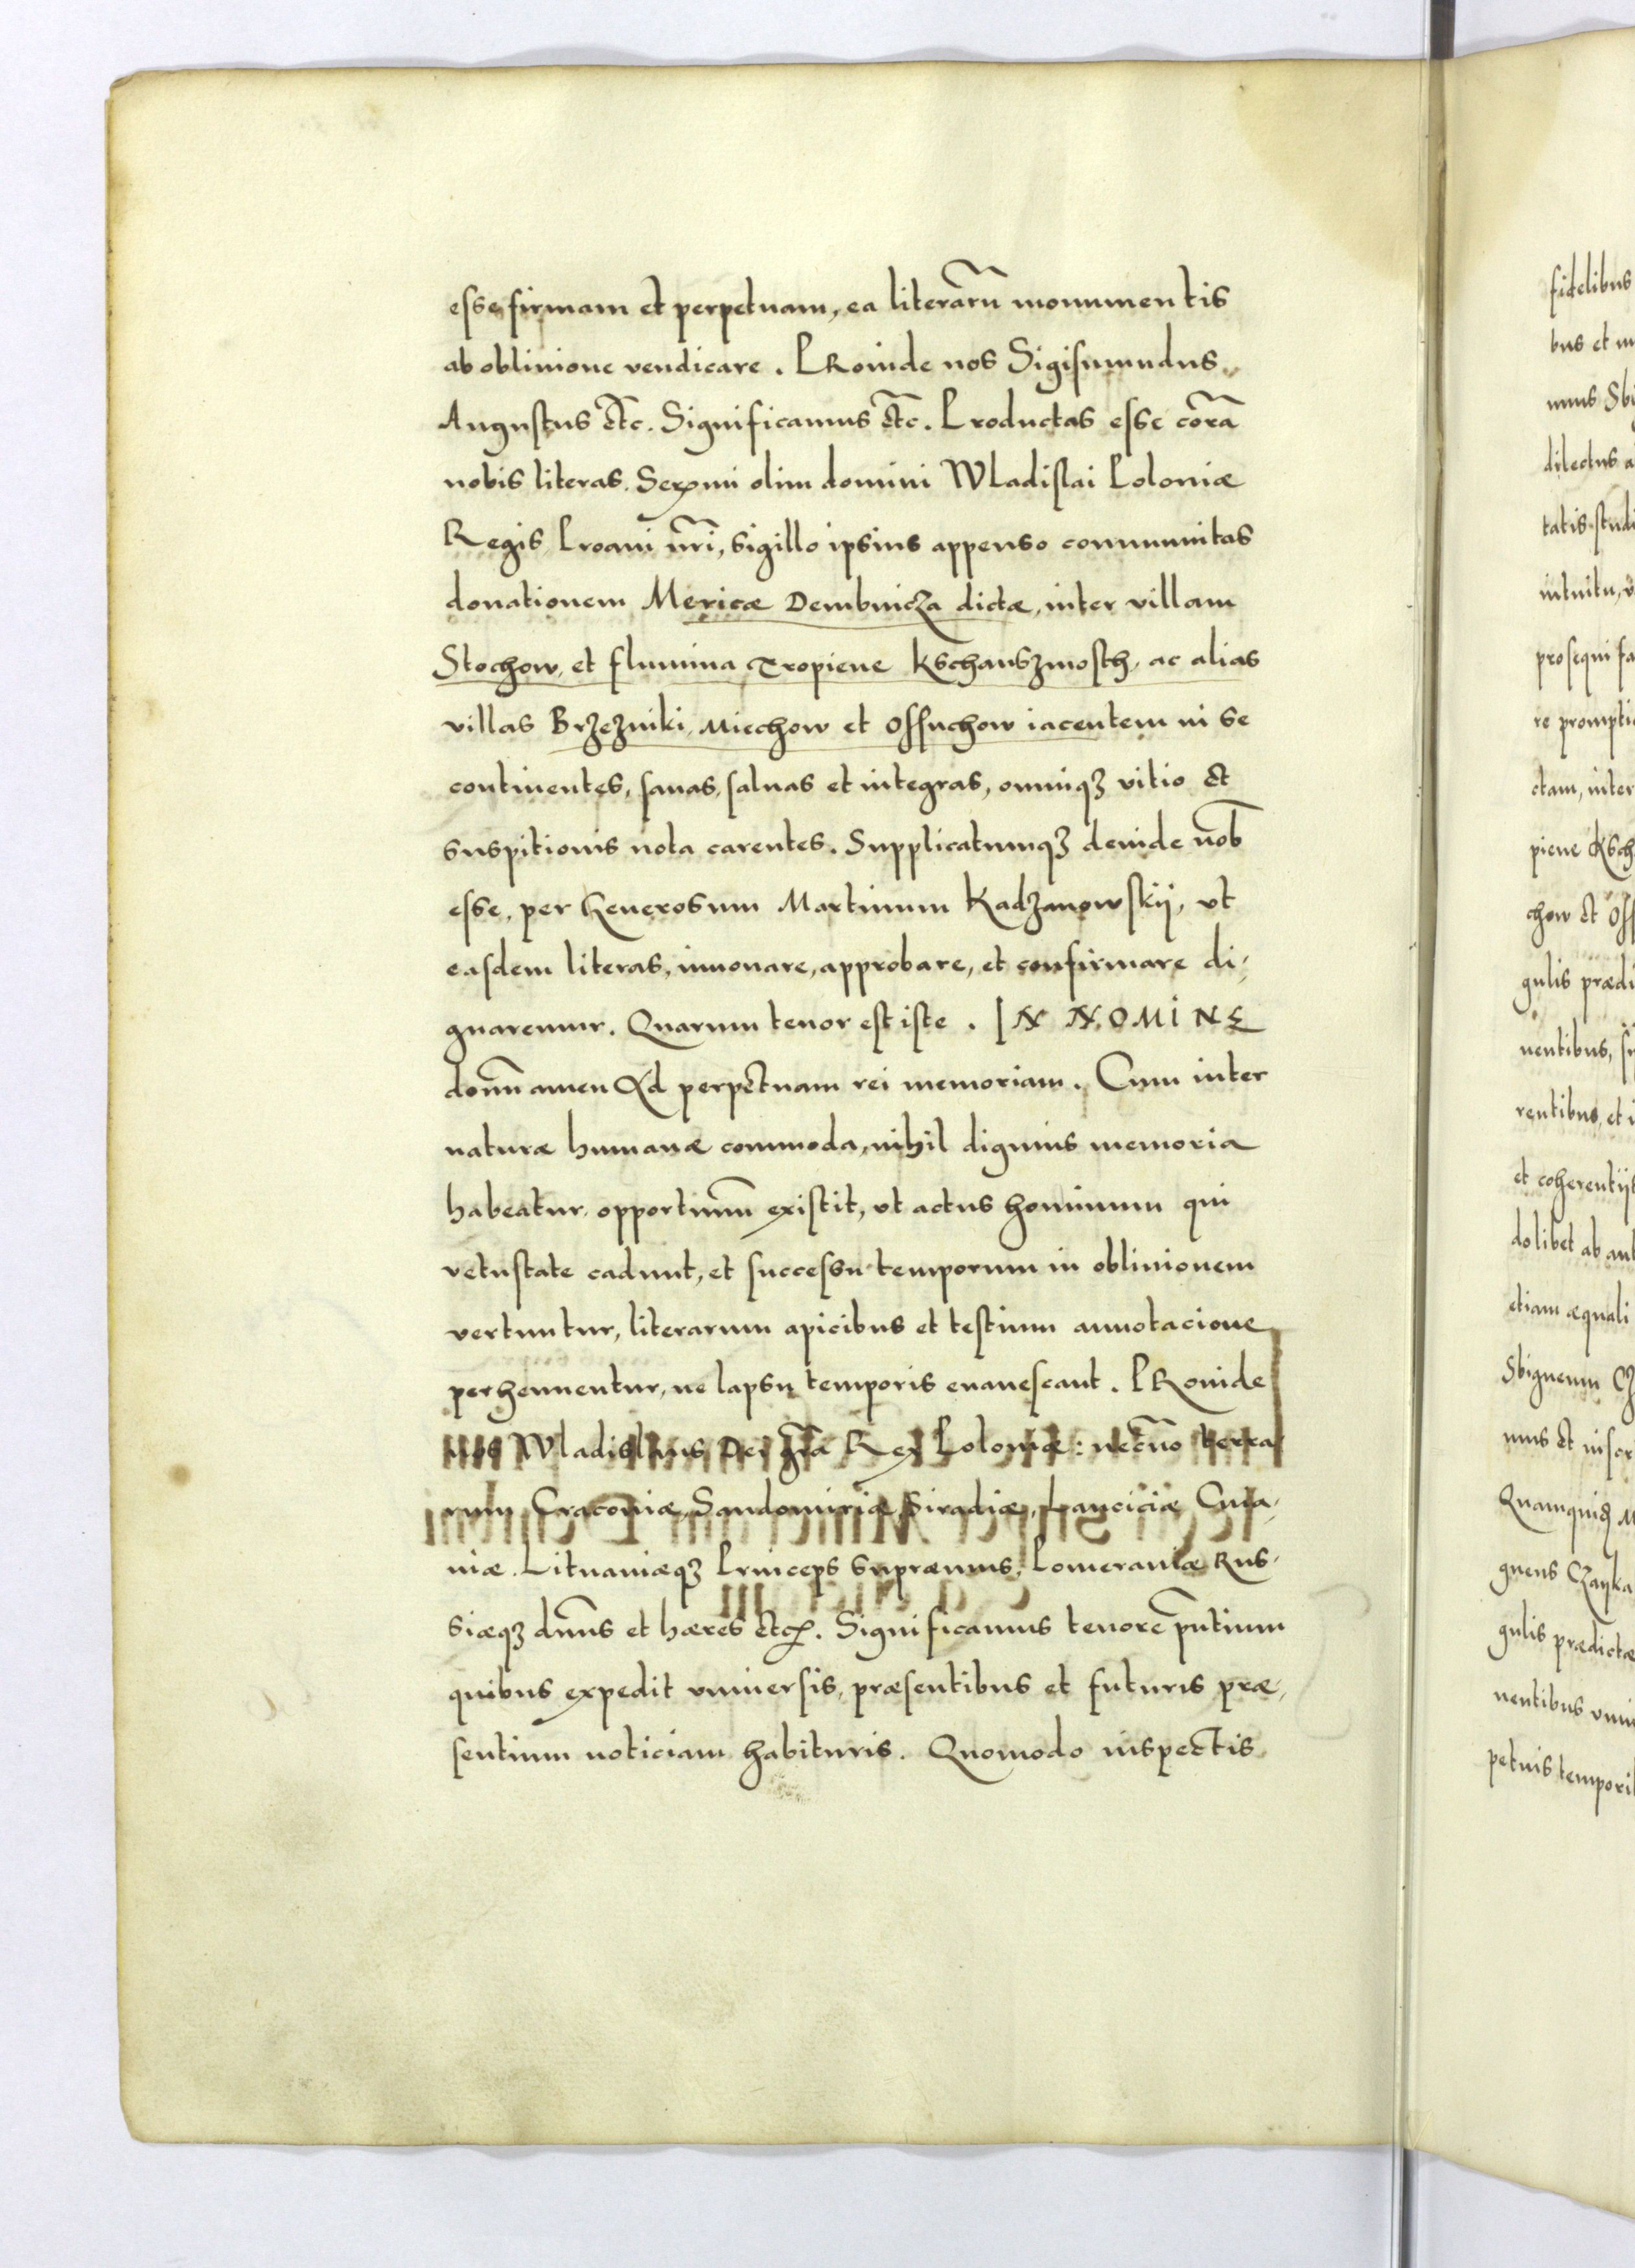 esse firmam et perpetuam, ea literarũ monumentis
ab obliuione vendicare. PRoinde nos Sigismundus
Augustus etc. Significamus etc. Productas esse corã
nobis literas. Serᵐⁱ olim domini Wladislai Poloniæ
Regis Proaui nr̃i, sigillo ipsius appenso communitas
donationem Mericæ Dembnicza dictæ, inter villam
Stochow, et flumina Tropiene Kschanszmosth, ac alias
villas Brzezniki, Miechow et Ossuchow iacentem in se
continentes, sanas, saluas et integras, omniqꝫ vitio et
suspitionis nota carentes. Supplicatumqꝫ deinde nob̃
esse, per Generosum Martinum Kadzanowskii, vt
easdem literas, innouare, approbare, et confirmare di-
gnaremur. Quarum tenor est iste. IN NOMINE
domĩ amen Ad perpetuam rei memoriam. Cum inter
naturæ humanæ commoda, nihil dignius memoria
habeatur, opportunũ existit, vt actus hominum qui
vetustate cadunt, et successu temporum in obliuionem
vertuntur, literarum apicibus et testium annotacione
perhennentur, ne lapsu temporis euanescant. PRoinde
nos Wladislaus Dei gr̃a Rex Poloniæ: necnõ terra
rum Cracouiæ, Sandomiriæ, Siradiæ, Lanciciæ Cuia-
uiæ. Lituaniæqꝫ Princeps supræmus, Pomeraniæ Rus-
siæqꝫ dñus et hæres etc. Significamus tenorẽ pñtium
quibus expedit vniuersis, præsentibus et futuris præ-
sentium noticiam habituris. Quomodo inspectis
fidelibus
bus et
dilectus
tatis
intuitu,
prosequi
re
ctam, inter
piene Ksch
chow et Oss
gulis prædi
nentibus,
rentibus, et
et
dolibet ab
etiam æquali
Sbigneum
mus et
Quamquidē
gneus Czayka
gulis prædictæ
nentibus
petuis tempori